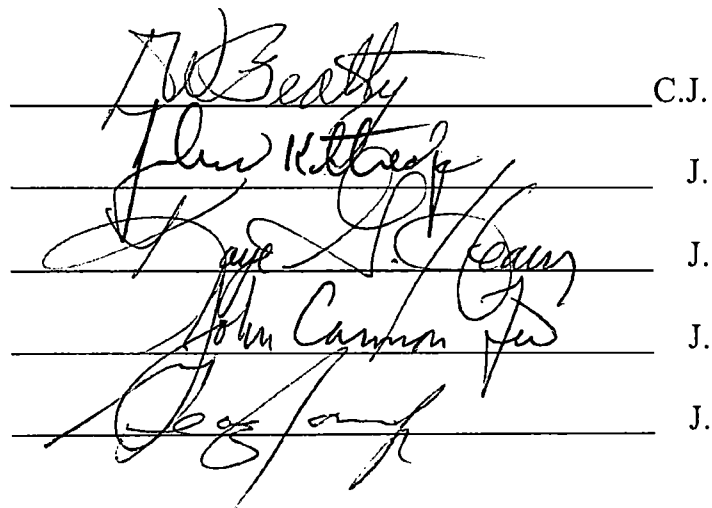 Beatty C.J.
John Kittredge J.
Kaye G. Hearn J.
John Cannon Few J.
J.